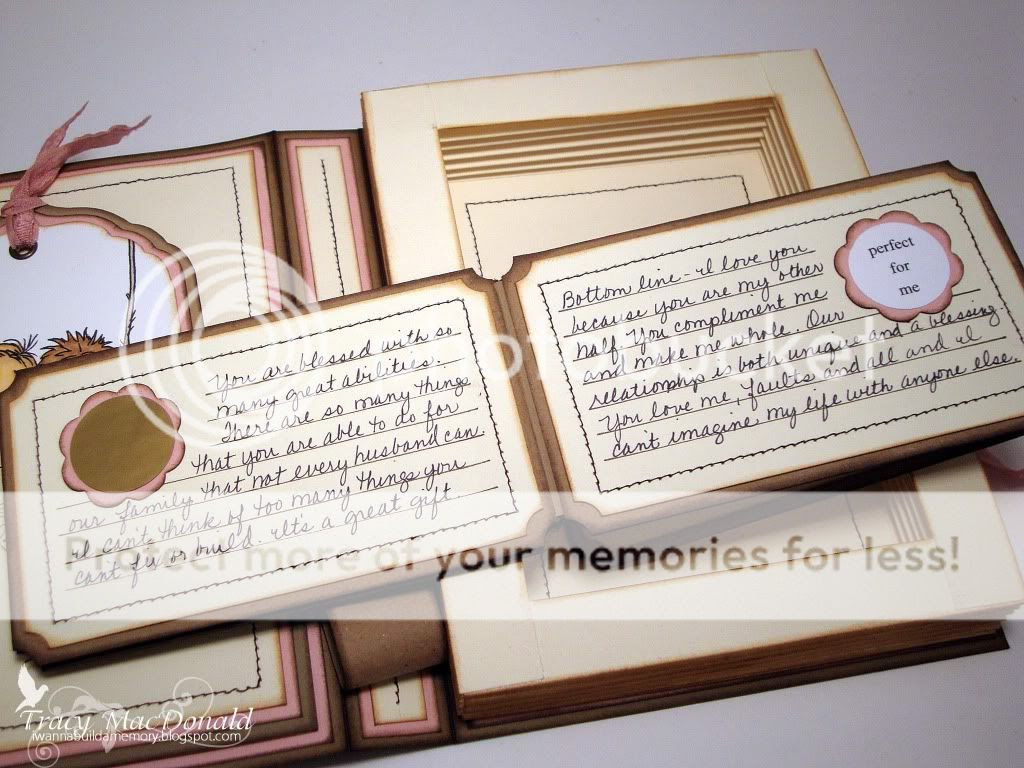 You are blessed with so
many great abilities.
There are so many things
that you are able to do for
our family that not every husband can.
I can't think of too many things you
cant fix or build. It's a great gift.
Bottom line - I love you
because you are my other
half. You compliment me
and make me whole. Our
relationship is both unique and a blessing.
You love me, faults and all and I
cant imagine my life with anyone else.
perfect
for
me
photobucket
Protect more of your memories for less!
Tracy MacDonald
iwannabuildamemory.blogspot.com